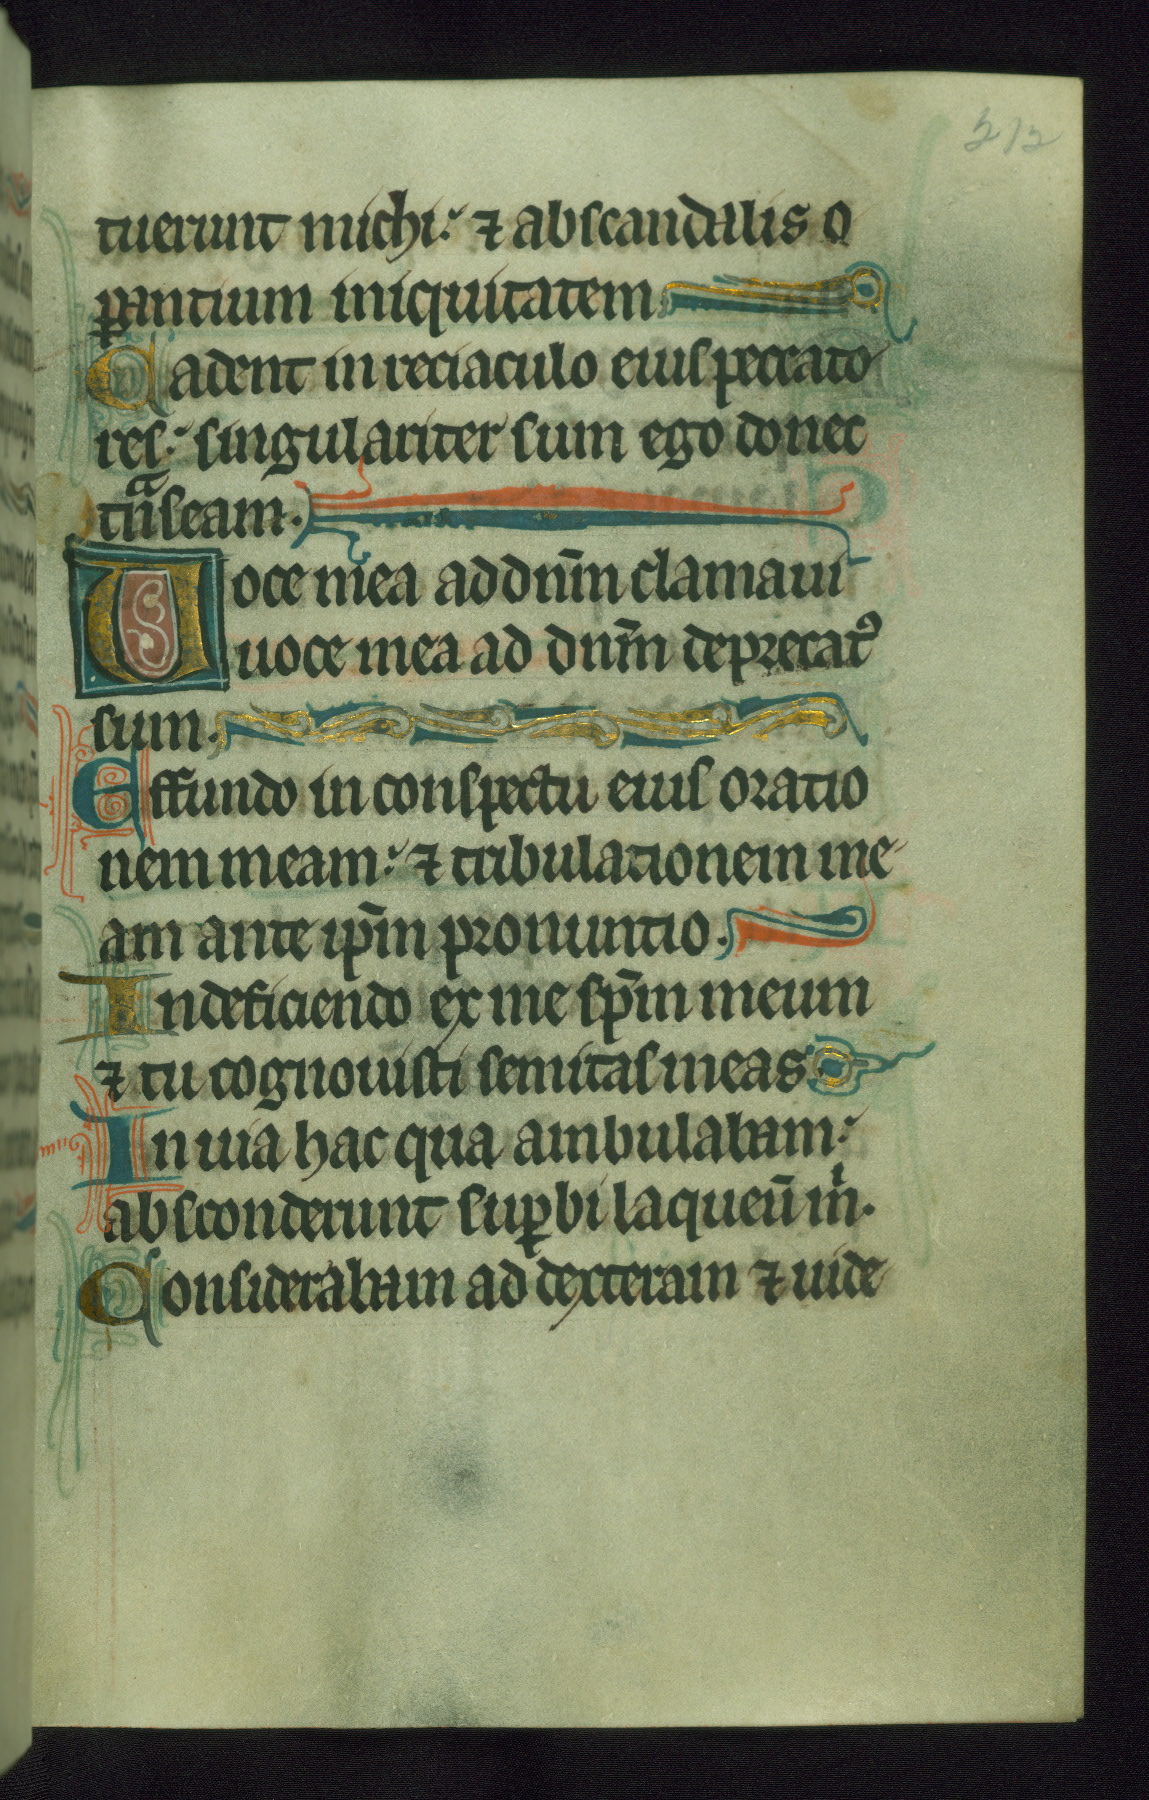 212
tuerunt michi: ⁊ ab scandalis o
ꝑantium iniquitatem
Cadent in reciaculo eius peccato
res: singulariter sum ego donec
tᷓnseam.
Uoce mea ad dn̄m clamaui
uoce mea ad dn̄m deprecatꝰ
sum.
Effundo in conspectu eius oratio
nem meam: ⁊ tribulationem me
am ante ip̄m pronuntio.
In deficiendo ex me sp̄m meum
⁊ tu cognouisti semitas meas
In uia hac qua ambulabam:
absconderunt suꝑbi laqueū m̍.
Considerabam ad dexteram ⁊ uide